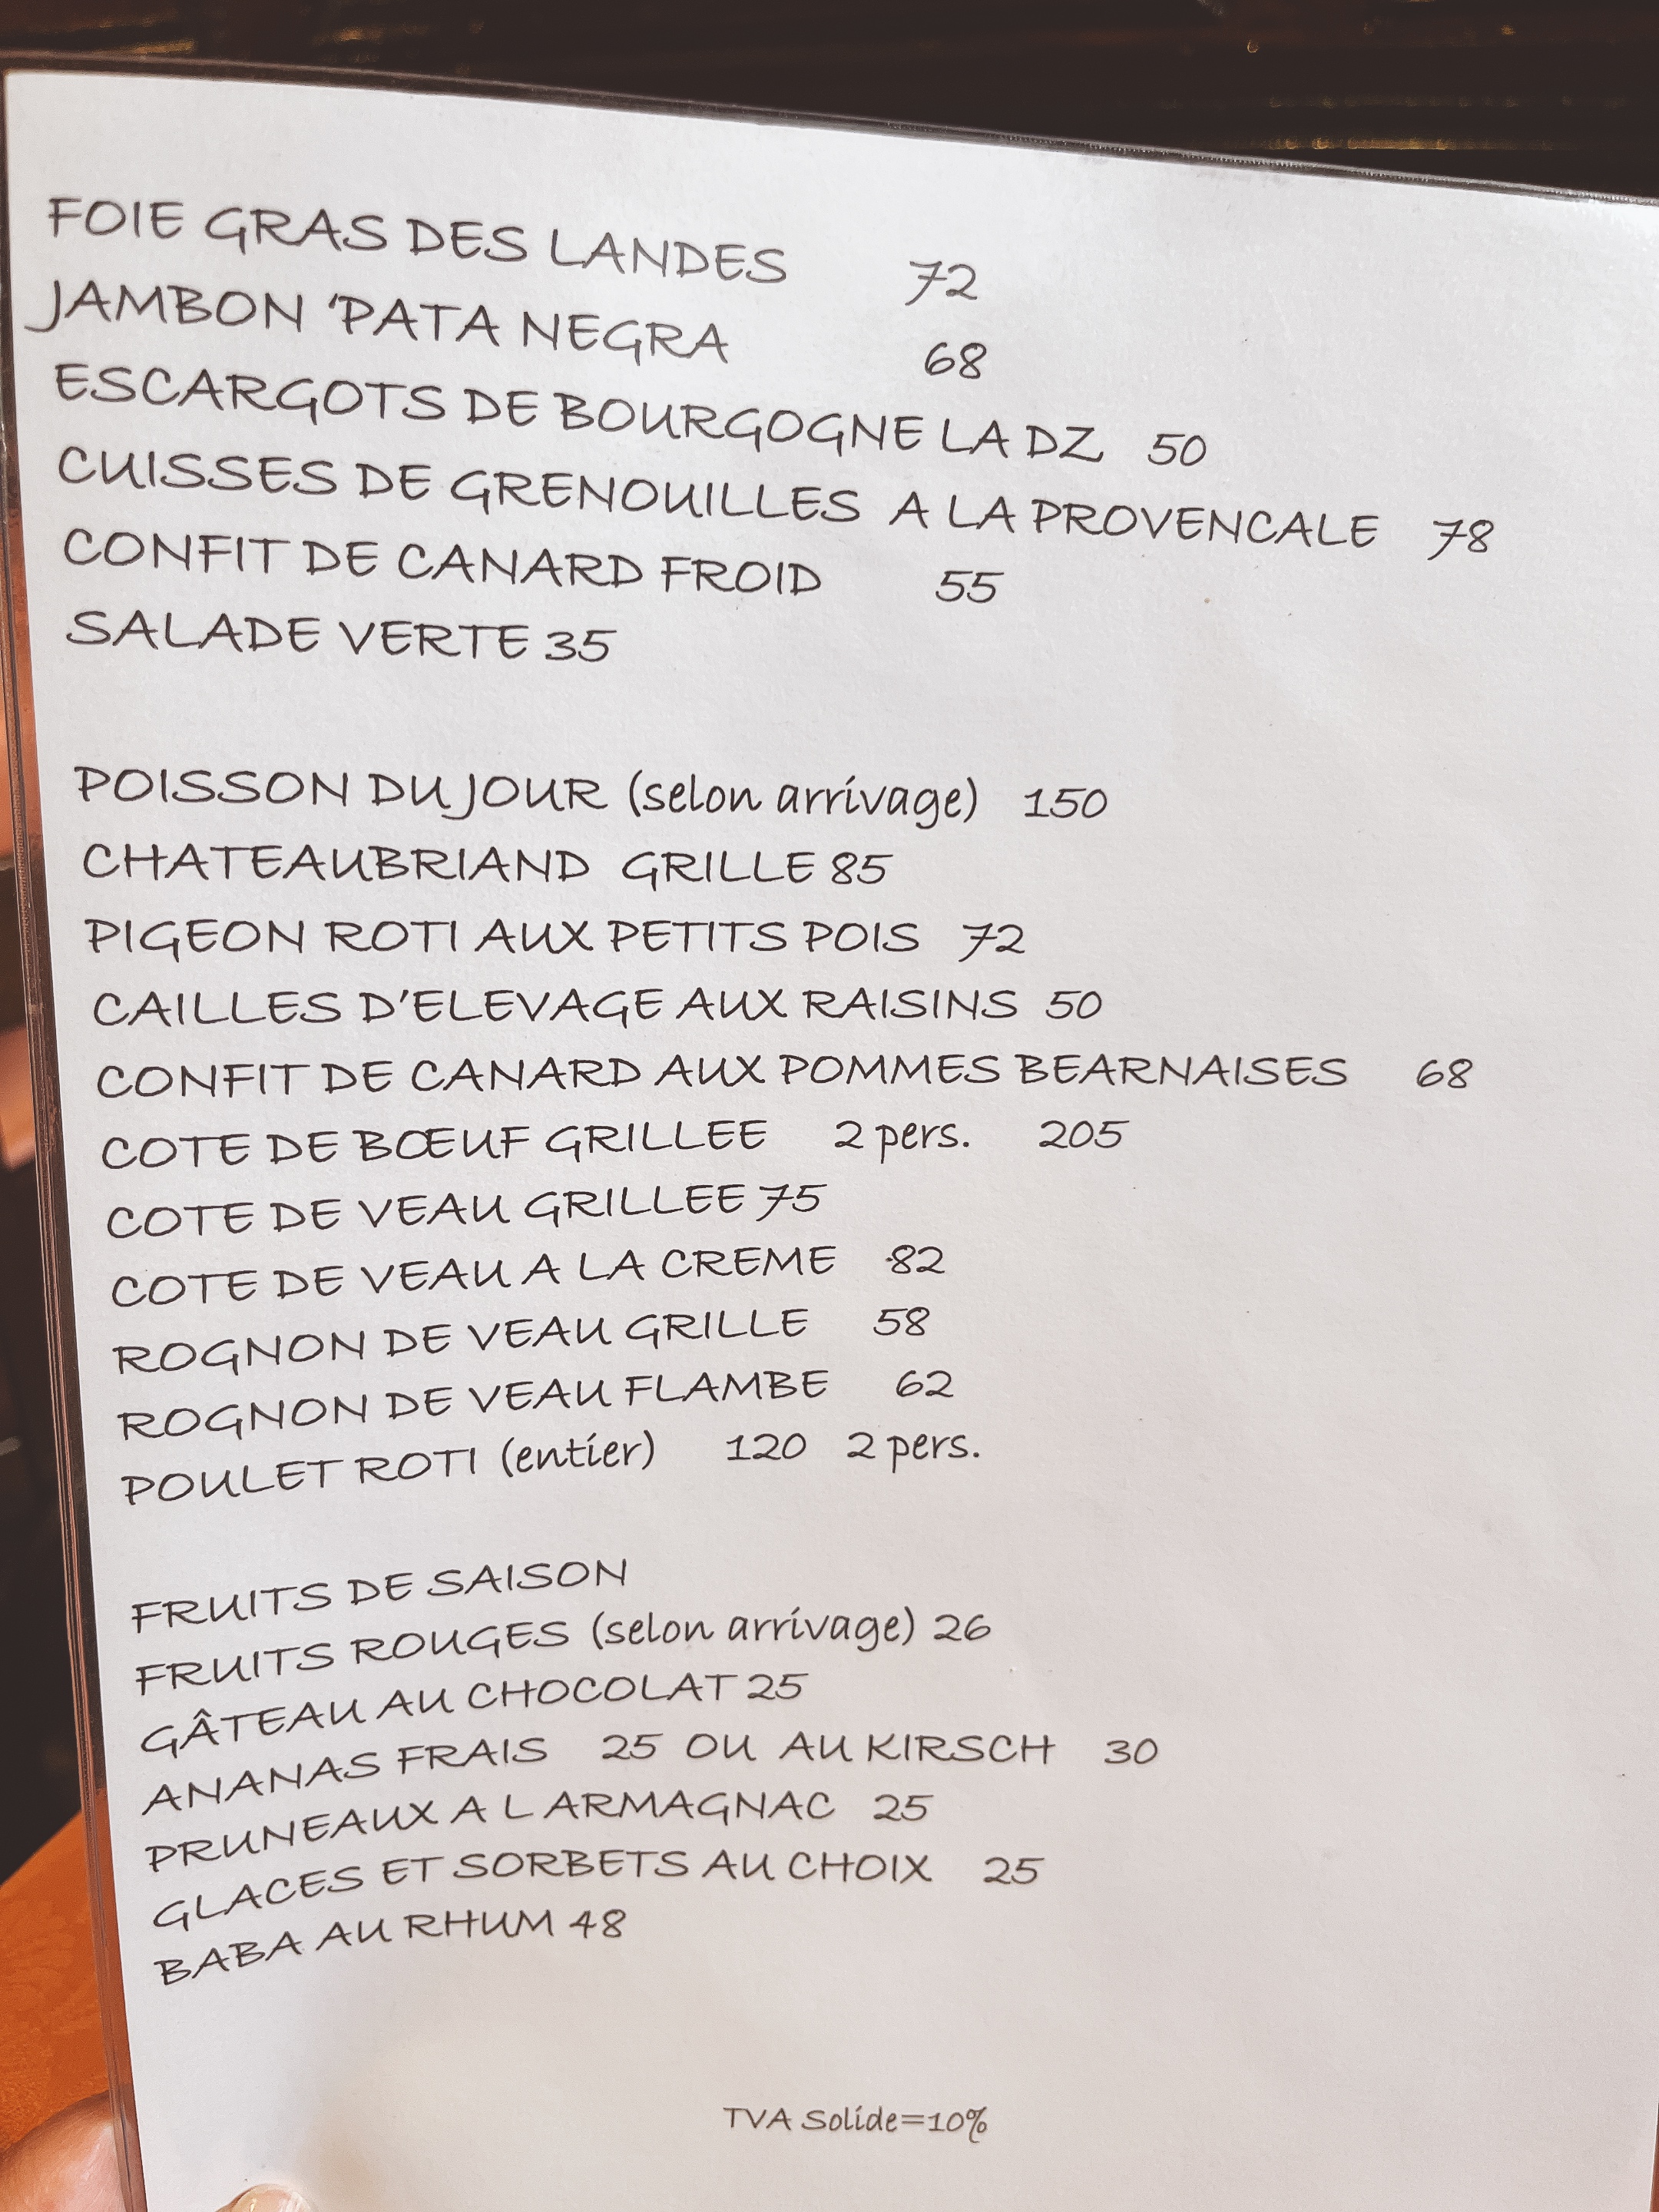 FOIE GRAS DES LANDES 72
JAMBON 'PATA NEGRA 68
ESCARGOTS DE BOURGOGNE LA DZ 50
CUISSES DE GRENOUILLES A LA PROVENCALE 78
CONFIT DE CANARD FROID 55
SALADE VERTE 35
POISSON DU JOUR (selon arrivage) 150
CHATEAUBRIAND GRILLE 85
PIGEON ROTI AUX PETITS POIS 72
CAILLES D'ELEVAGE AUX RAISINS 50
CONFIT DE CANARD AUX POMMES BEARNAISES 68
COTE DE BŒUF GRILLEE 2 pers. 205
COTE DE VEAU GRILLEE 75
COTE DE VEAU A LA CREME 82
ROGNON DE VEAU GRILLE 58
ROGNON DE VEAU FLAMBE 62
POULET ROTI (entier) 120 2 pers.
FRUITS DE SAISON
FRUITS ROUGES (selon arrivage) 26
GÂTEAU AU CHOCOLAT 25
ANANAS FRAIS 25 OU AU KIRSCH 30
PRUNEAUX A L ARMAGNAC 25
GLACES ET SORBETS AU CHOIX 25
BABA AU RHUM 48
TVA Solide=10%